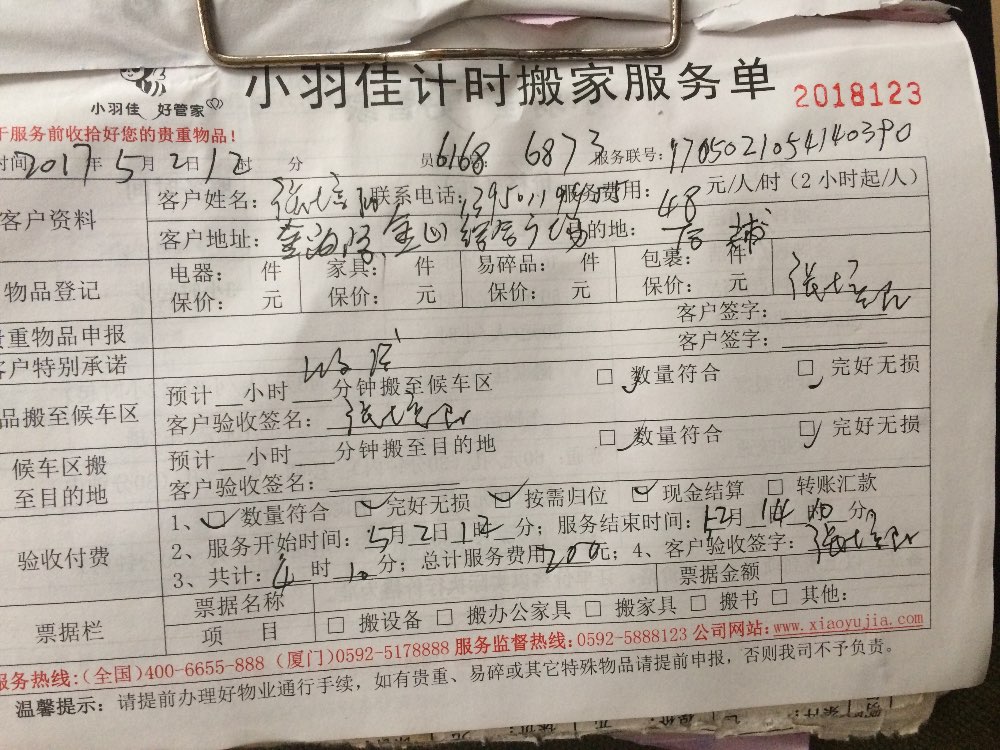 小羽佳 好管家
小羽佳计时搬家服务单
2018123
于服务前收拾好您的贵重物品!
时间2017年5月2日12时 分 员6168 6873 服务联号:1705021054140390
客户资料 客户姓名: 联系电话: 服务费用:48元/人/时(2小时起/人)
客户地址: 目的地:
物品登记 电器: 件 家具: 件 易碎品: 件 包裹: 件
保价: 元 保价: 元 保价: 元 保价: 元
贵重物品申报 客户签字:
客户特别承诺 客户签字:
品搬至候车区 预计__小时___分钟搬至候车区 □ 数量符合 □ 完好无损
客户验收签名:
候车区搬至目的地 预计__小时___分钟搬至目的地 □ 数量符合 □ 完好无损
客户验收签名:
验收付费 1、□ 数量符合 □ 完好无损 □ 按需归位 □ 现金结算 □ 转账汇款
2、服务开始时间:5月2日 分;服务结束时间: 月 分
3、共计:4时10分;总计服务费用200元;4、客户验收签字:
票据栏 票据名称 票据金额
项 目 □ 搬设备 □ 搬办公家具 □ 搬家具 □ 搬书 □ 其他:
服务热线:(全国)400-6655-888 (厦门)0592-5178888 服务监督热线:0592-5888123 公司网站:www.xiaoyujia.com
温馨提示:请提前办理好物业通行手续,如有贵重、易碎或其它特殊物品请提前申报,否则我司不予负责。